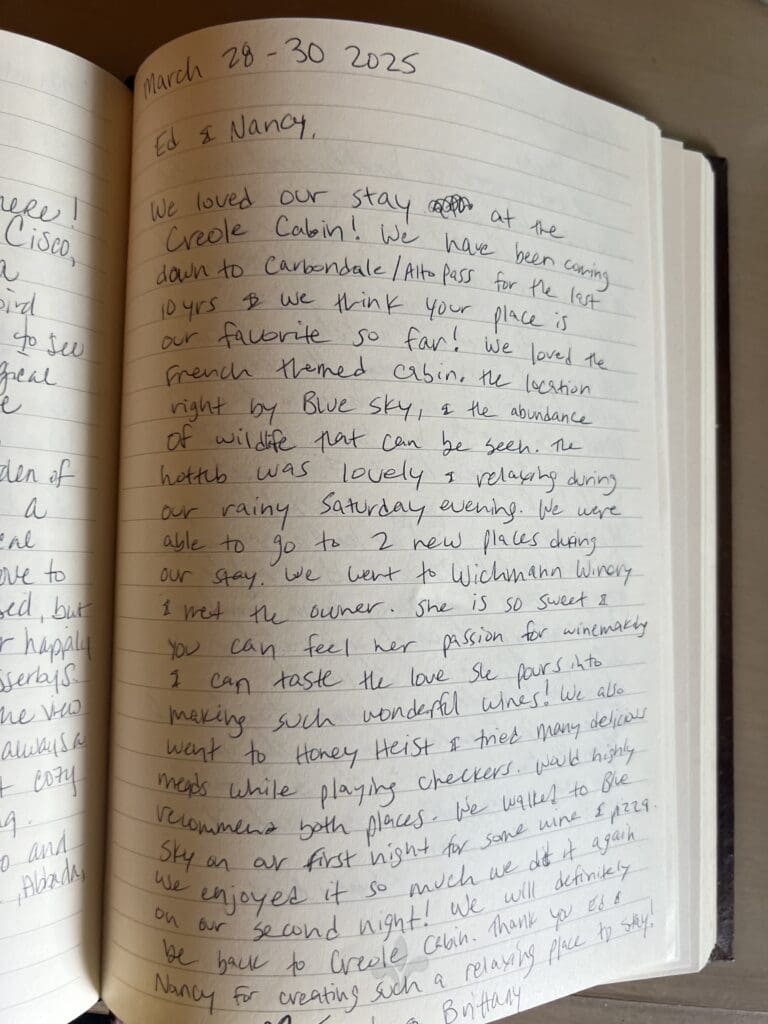 here!
Cisco,
a
bird
to see
great
e
den of
a
ove to
sed, but
r happily
sserbys.
he view
always a
t cozy
g.
o and
, Abbada,
March 28 - 30 2025
Ed & Nancy,
We loved our stay at the
Creole Cabin! We have been coming
down to Carbondale/Alto Pass for the last
10 yrs & we think your place is
our favorite so far! We loved the
French themed cabin, the location
right by Blue Sky, & the abundance
of wildlife that can be seen. The
hottub was lovely & relaxing during
our rainy Saturday evening. We were
able to go to 2 new places during
our stay. We went to Wichmann Winery
& met the owner. She is so sweet &
you can feel her passion for winemaking
& can taste the love she pours into
making such wonderful wines! We also
went to Honey Heist & tried many delicious
meads while playing checkers. Would highly
recommend both places. We walked to Blue
Sky on our first night for some wine & pizza.
We enjoyed it so much we did it again
on our second night! We will definitely
be back to Creole Cabin. Thank you Ed &
Nancy for creating such a relaxing place to stay!
Brittany